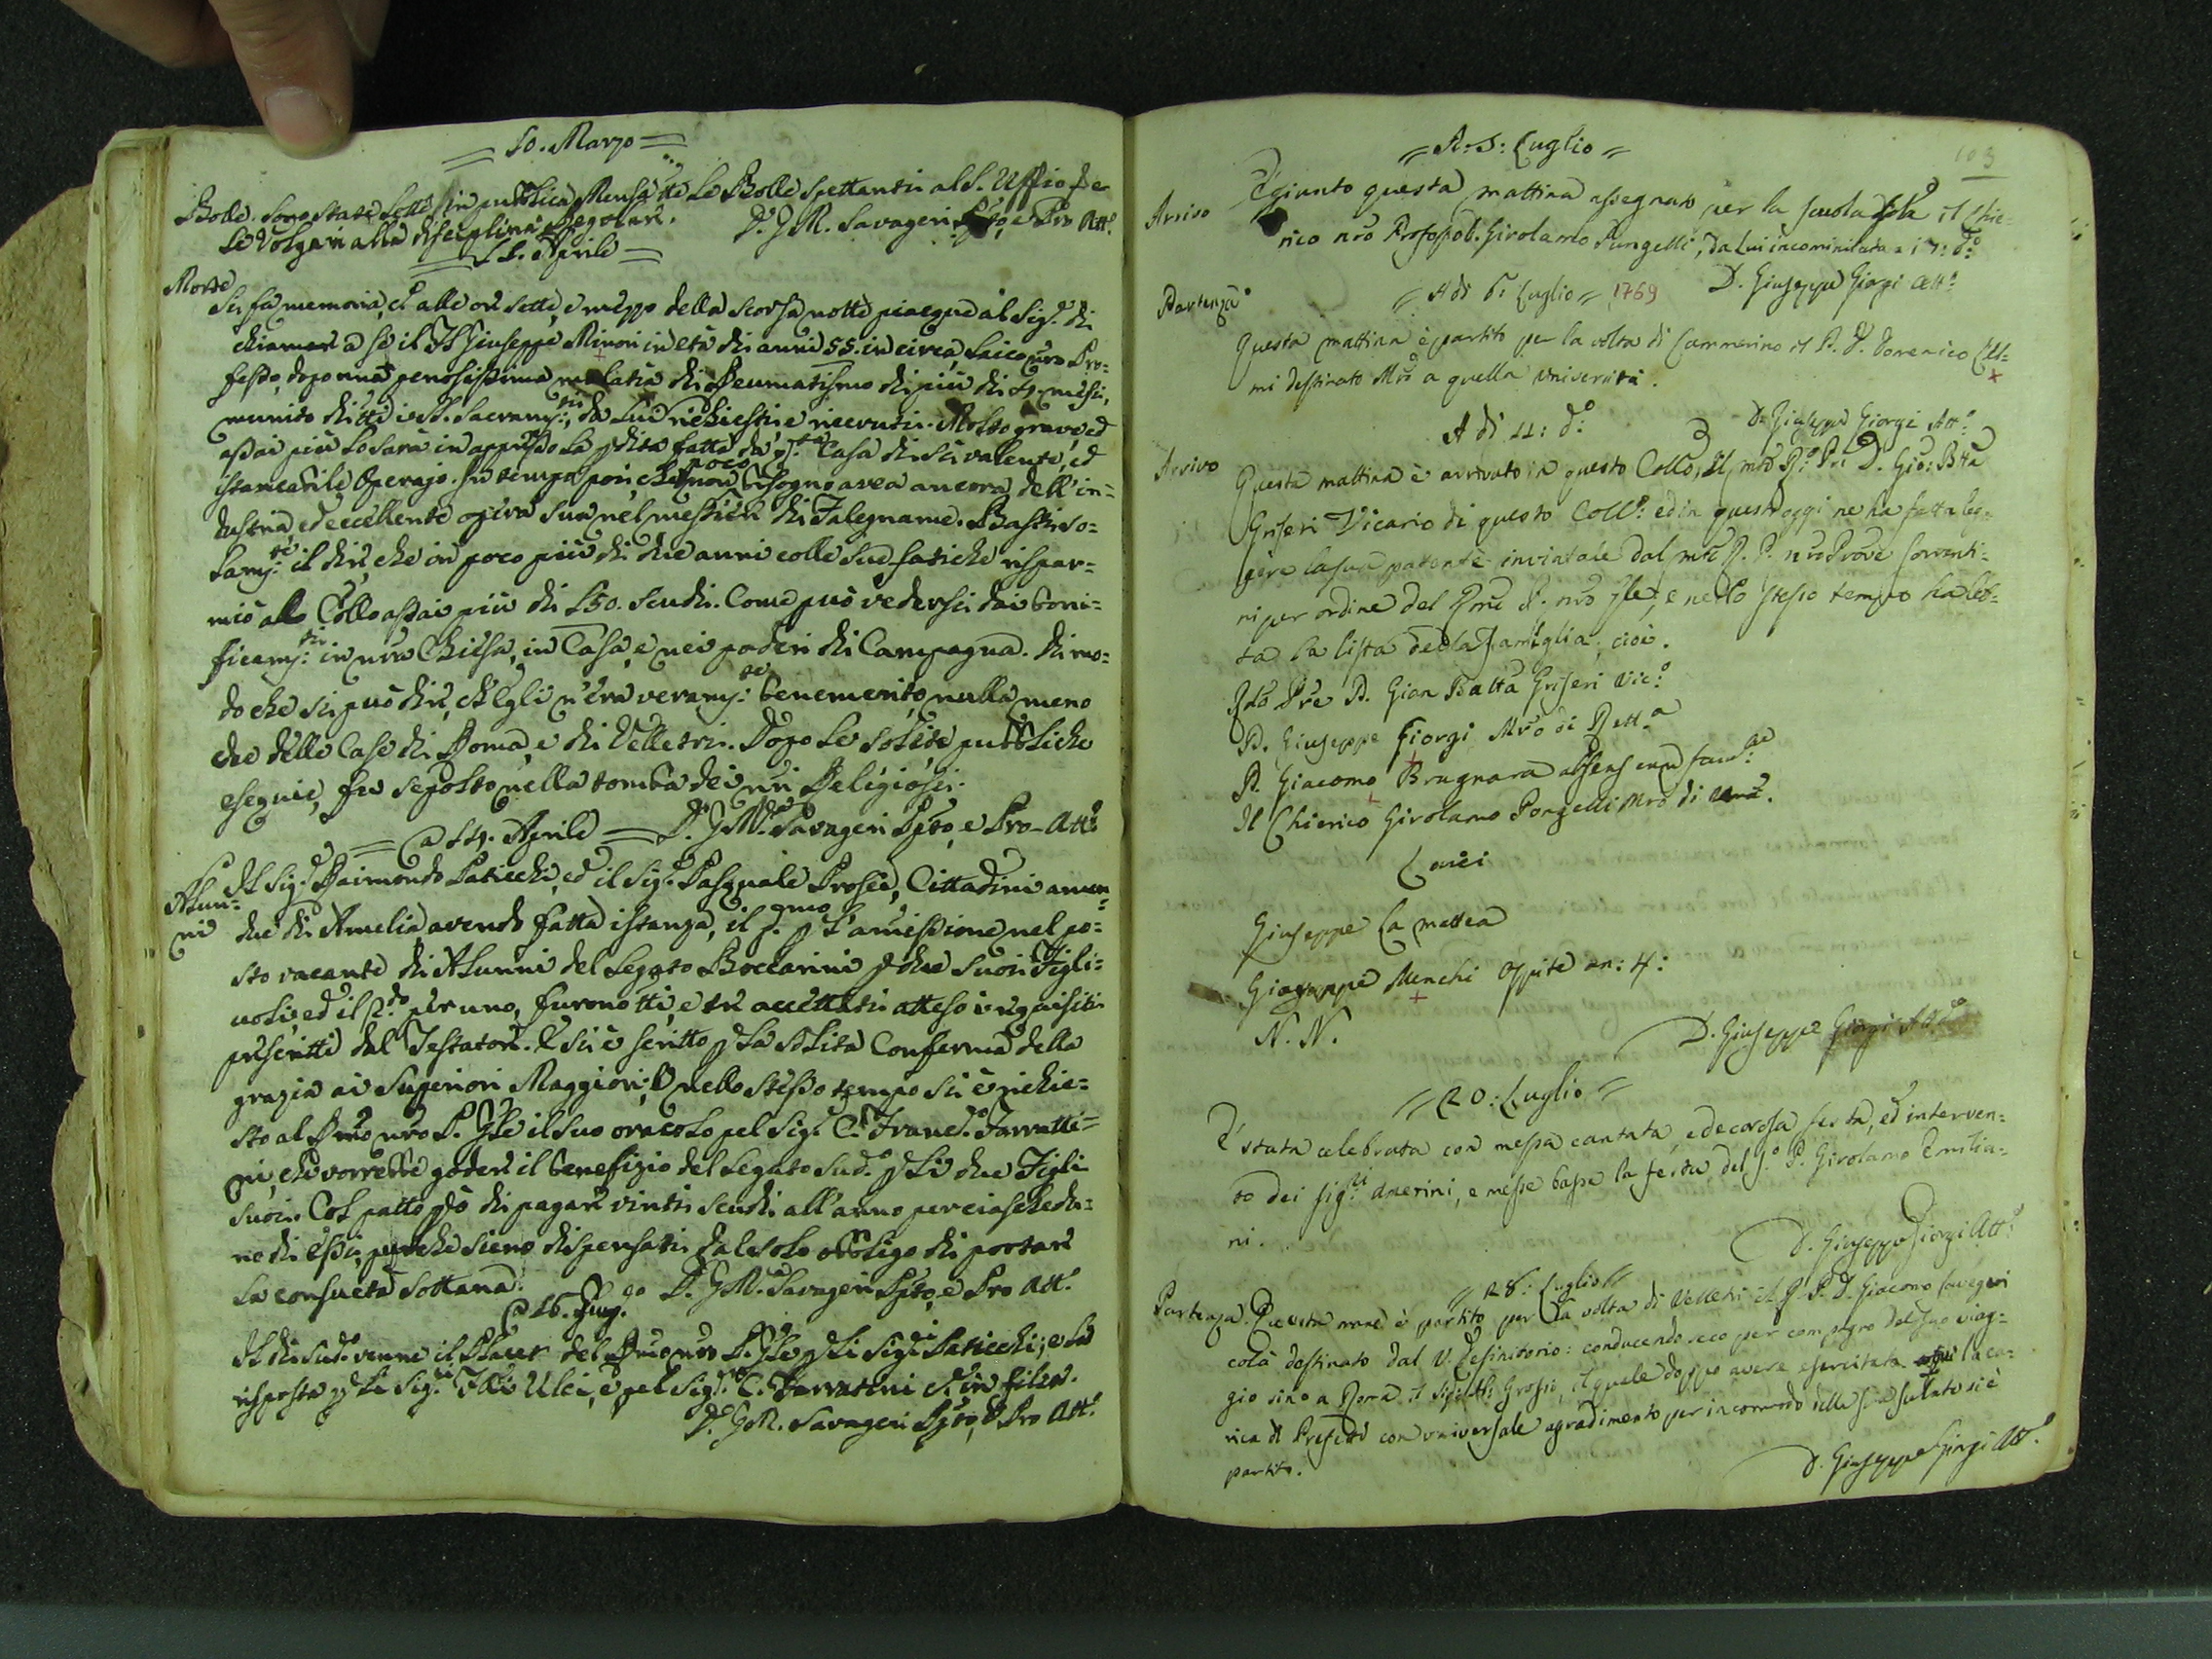 = 10. Marzo =
Bolle. Sono state lette in publica Mensa tte le Bolle spettanti al S. Uffio, e
le Volgari alla disciplina Regolare.
D. G. M. Savageri Ppto, e Pro Att.
= 11. Aprile =
Morte
Si fa memoria, ch' alle ore sette, e mezzo della scorsa notte piacque al Sig.e di
chiamare a se il Fr Giuseppe Minori in età di anni 55. in circa Laico nro Pro-
fesso, dopo una penosissima malatia di Reumatismo di più di mesi,
munito di tti i SS. Sacram.ti, da lui richiesti e ricevuti. Molto grave, ed
assai più lo sarà in appresso la pdita fatta da q.ta Casa di sì valente, ed
istancabile Operajo. In tempo poi, che non poco bisogno avea ancora dell' in-
dustria, ed eccellente opera sua nel mestiere di Falegname. Basti so-
lam.te il dire, che in poco più di due anni colle sue fatiche rispar-
miò al Collo assai più di 150. scudi. Come può vedersi dai boni-
ficam.ti in nra Chiesa, in Casa, e nei poderi di Campagna. Di mo-
do che si può dire, ch' Egli n'era veram.te benemerito, nulla meno
che delle Case di Roma, e di Velletri. Dopo le solite pubbliche
esequie, fu sepolto nella tomba dei nri Religiosi.
= a 14. Aprile = D. G. M. Savageri Ppto, e Pro-Att.
Alun-
ni
Il Sig.e Raimondo Laticchi, ed il Sig.e Pasquale Prosei, Cittadini amen-
due di Amelia avendo fatta istanza, il pmo p l'amissione nel po-
sto vacante di Alunni del Legato Boccarini p due suoi Figli-
uoli, ed il 2.do per uno, furono tti, e tre accettati atteso i requisiti
prescritti dal Testatore. E si è scritto p la solita Conferma della
grazia ai Superiori Maggiori; E nello stesso tempo si è richie-
sto al Rmo nro P. Gle il suo oracolo pel Sig. C. Franc.o Farratti-
ni, che vorrebbe godere il benefizio del Legato sud.o p li due Figli
suoi. Col patto pò di pagare vinti scudi all' anno per ciaschedu-
no di Essi, perche sieno dispensati dal solo obbligo di portare
la consueta Sottana.
D. G. M. Savageri Ppto, e Pro Att.
a 16. Giug.
Il dì sud.o venne il Placet del Rmo nro P. Gle p li Sig.i Laticchi; e la
risposta p li Sig.i Flli Ulei, e pel Sig.e C. Farratini ch' in filza.
D. G. M. Savageri Ppto, e Pro Att.
103
= A. 5: Luglio =
Arrivo
E' giunto questa mattina assegnato per la scuola il Chie-
rico nro Professo b. Girolamo Pongelli, da lui incominciata a i 7: d.o
D. Giuseppe Giorgi Att.o
= A di 6: Luglio = 1769
Partenza
Questa mattina è partito per la volta di Cammerino il P. D. Domenico Cel-
mi destinato Mro a quella Università.
D. Giuseppe Giorgi Att.o
A dì 11: d.o
Arrivo
Questa mattina è arrivato in questo Collo, il mto R.o Pre D. Gio: Btta
Griseri Vicario di questo Coll.o ed in quest'oggi ne ha fatta leg-
gere la sua patente inviatale dal mto R. P. nro Prove Sorrenti-
ni per ordine del Rmo P. nro Gle, e nello stesso tempo ha let-
ta la lista della Famiglia, cioè.
Rdo Pre D. Gian Batta Griseri Vic.o
D. Giuseppe Giorgi Mro di Rett.a
D. Giacomo Brugnara absens cum facul.te
Il Chierico Girolamo Pongelli Mro di
Laici
Giuseppe La mattea
Giuseppe Menchi Oppite an: 4:
N. N.
D. Giuseppe Giorgi Att.o
= 20: Luglio =
E' stata celebrata con messa cantata, e decorosa festa, ed interven-
to dei Sig.ri Amerini, e messe basse la festa del S.o P. Girolamo Emilia-
ni.
D. Giuseppe Giorgi Att.o
= 28: Luglio =
Partenza. Questa mane è partito per la volta di Velletri il P. D. Giacomo Savageri
colà destinato dal V. Definitorio: conducendo seco per compagno del suo viag-
gio sino a Roma il Sig. Grossi, il quale doppo avere esercitata qui la ca-
rica di Prefetto con universale agradimento per incommodo della sua salute si è
partito.
D. Giuseppe Giorgi Att.o